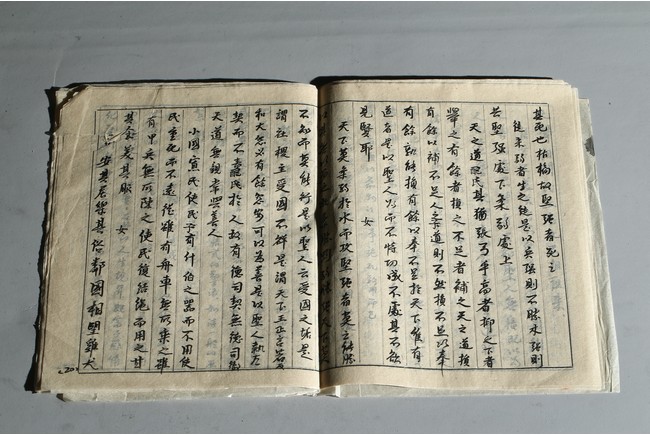 其死也枯槁故堅强者死之
徒柔弱者生之徒是以兵强則不勝木强則
共堅强處下柔弱處上
天之道其猶張弓乎高者抑之下者
舉之有餘者損之不足者補之天之道損
有餘以補不足人之道則不然損不足以奉
有餘孰能損有餘以奉不足於天下唯有
道者是以聖人為而不恃功成不處其不欲
見賢耶
天下莫柔弱於水而攻堅强者莫之能勝
不知而莫能行是以聖人云受國之垢是
謂社稷主受國不祥是謂天下王正言若
和大怨必有餘怨安可以為善是以聖人執左
契而不責於人故有德司契無德司
天道無親常與善人
小國寡民使民有什伯之器而不用使
民重死而不遠徙雖有舟車無所乘之雖
有甲兵無所陳之使民復結繩而用之甘
其食美其服
安其居樂其俗鄰國相望雞犬